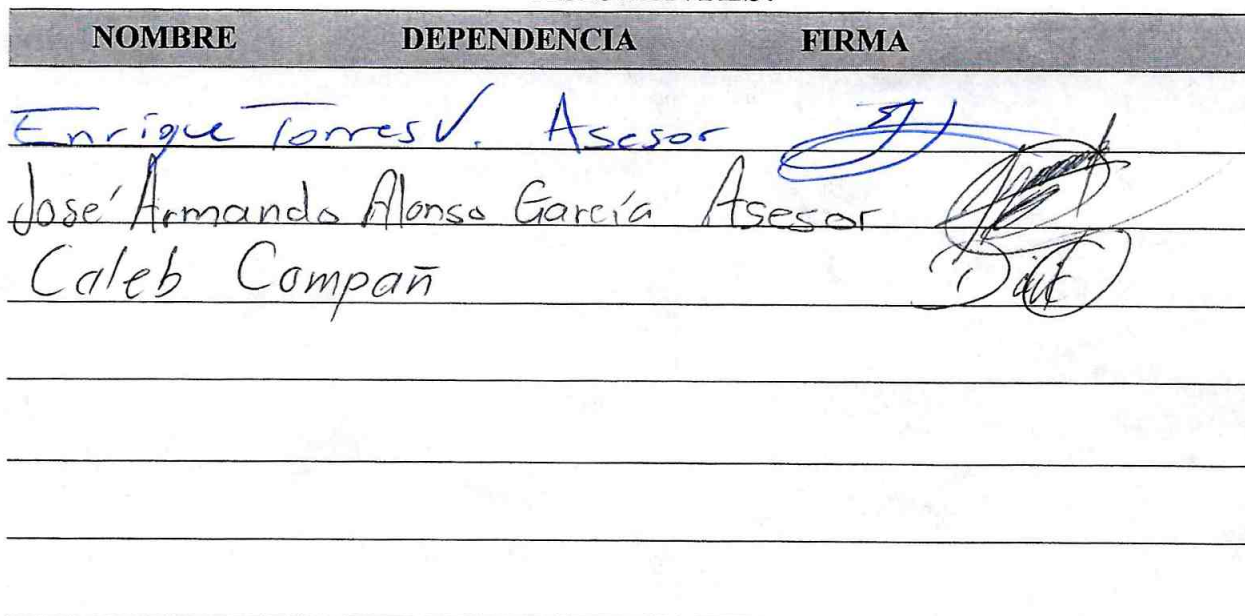 NOMBRE DEPENDENCIA FIRMA
Enrique Torres V. Asesor
José Armando Alonso García Asesor
Caleb Compañ